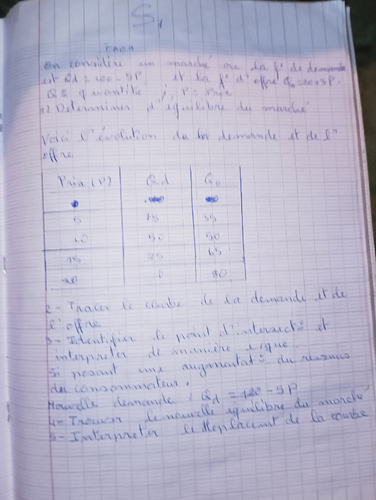 S1
On considère un marché où la f° de demande
est Qd = 100 - 5P et la f° d'offre Qo = 20+3P.
Q = quantité , P = Prix
1) Determiner d'équilibre du marché
Voici l'évolution de la demande et de l'
offre
Prix (P) Qd Qo
5 75 35
10 50 50
15 25 65
20 0 80
2- Tracer le courbe de la demande et de
l'offre
3- Identifier le point d'intersect° et
interpreter de manière
Si posant une augmentat° du revenus
du consommateur.
Nouvelle demande : Qd = - 5P
4- Trouver le nouvelle equilibre du marché
5- Interpreter le deplacemt de la courbe